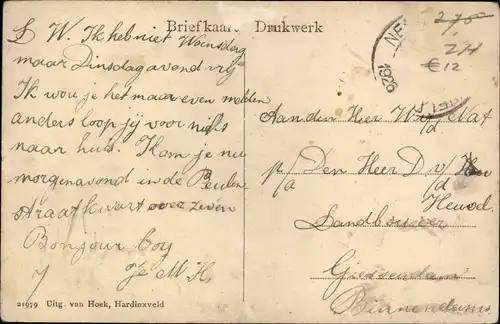 Briefkaart Drukwerk
L W. Ik heb niet Woensdag
maar Dinsdagavond vrij
Ik wou je het maar even melden
anders loop jij voor niets
naar huis. Kom je nu
morgenavond in de Peulen
straat kwart over zeven
Bonjour Coy
Je M. K.
21979 Uitg. van Hoek, Hardinxveld
1926
2,75
€12
Aan den Heer W v/d Nat
p/a Den Heer D v/d
Heuvel
Landbouwer
Giessendam
Binnendams